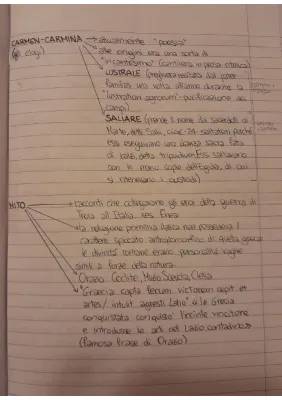 CARMEN-CARMINA → attualmente "poesia"
(elogi) → alle origini era una sorta di
"incantesimo" (cantilena in prosa ritmica)
LUSTRALE (preghiera recitata dal pater
familias una volta all'anno durante la
"lustratio agrorum": purificazione dei
campi)
SALIARE (prende il nome dai sacerdoti di
Marte, detti Salii, cioè saltatori perché
essi eseguivano una danza sacra fatta
di salti, detta tripudium. Essi salivano
con in mano copie dell'Egida, di cui
si ritenevano i custodi)
MITO → racconti che collegano gli eroi della guerra di
Troia all'Italia es. Enea
→ la religione primitiva italica non possedeva il
carattere spiccato antropomorfico di quella greca:
le divinità romane erano personalità vaghe
simili a forze della natura
Orazio Coclite, Muzio Scevola, Clelia
"Graecia capta ferum victorem cepit et
artes / intulit agresti Latio" = la Grecia
conquistata conquistò l'incivile vincitore
e introdusse le arti nel Lazio contadino
(famosa frase di Orazio)